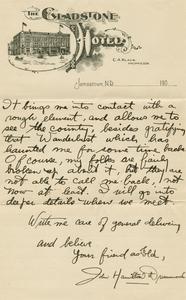 THE GLADSTONE
HOTEL
C. A. BLACK
PROPRIETOR
JAMESTOWN, N.D. 190
It brings me into contact with a
rough element, and allows me to
see the country, besides gratifying
that Wanderlust which has
haunted me for some time back.
Of course, my folks are fairly
broken up about it, but they are
not able to call me back, not
now at least. I will go into
deeper details when we meet
Write me care of general delivery
and believe
Your friend as old,
John Hamilton